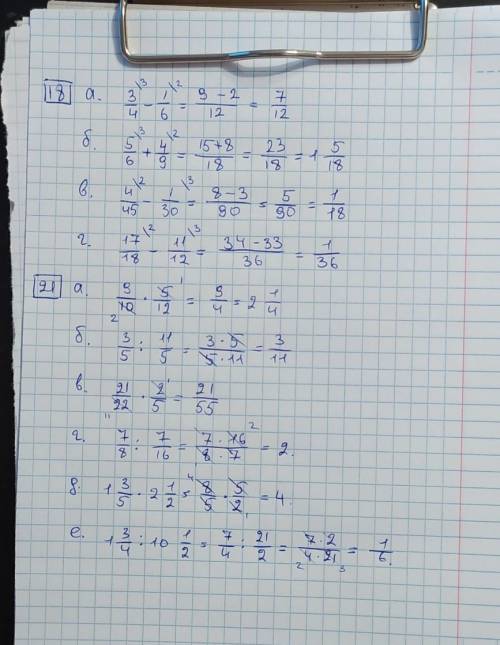 18 а. 3/4\3 - 1/6\2 = 9-2/12 = 7/12
б. 5/6\3 + 4/9\2 = 15+8/18 = 23/18 = 1 5/18
в. 4/45\2 - 1/30\3 = 8-3/90 = 5/90 = 1/18
г. 17/18\2 - 11/12\3 = 34-33/36 = 1/36
21 а. 9/10 2 · 5/12 1 = 9/4 = 2 1/4
б. 3/5 : 11/5 = 3·5/5·11 = 3/11
в. 21/22 11 · 2/5 1 = 21/55
г. 7/8 : 7/16 = 7·16/8·7 2 = 2.
д. 1 3/5 · 2 1/2 = 4 8/5 · 5/2 1 = 4.
е. 1 3/4 : 10 1/2 = 7/4 : 21/2 = 7·2/4·21 2 3 = 1/6.